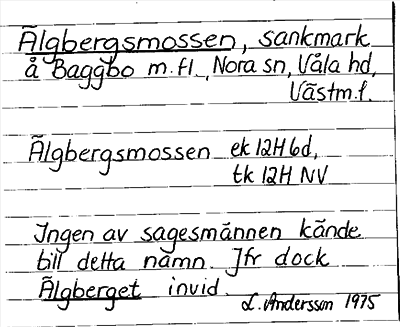 Älgbergsmossen, sankmark
å Baggbo m.fl., Nora sn, Våla hd,
Västm.l.
Älgbergsmossen ek 12H 6d,
tk 12H NV
Ingen av sagesmännen kände
till detta namn. Jfr dock
Älgberget invid.
L. Andersson 1975